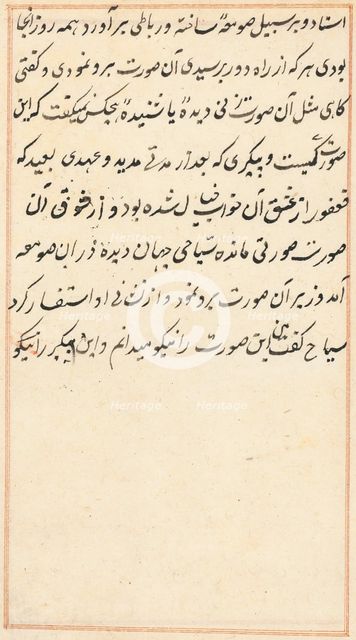 استاد و بر سبیل صومعهٔ ساخته و رباطی برآورد همه روز آنجا
بودی هر که از راه دور برسیدی آن صورت برو نمودی و کفتی
کاهی مثل آن صورتی دیدهٔ یا شنیدهٔ هیچکس نمیکفت که این
صورت کیست و پیکری که بعد از مدتی مدید و عهدی بعید که
فغفور از عشق آن خواب خیال شده بود و از شوق آن
صورت صورتی مانده سیاحی جهان دیده در ان صومعه
آمد وزیر آن صورت برو نمود و از وی استفسار کرد
سیاح کفت این صورت را نیکو میدانم و این پیکر را نیکو
Heritage
Heritage
Heritage
Heritage